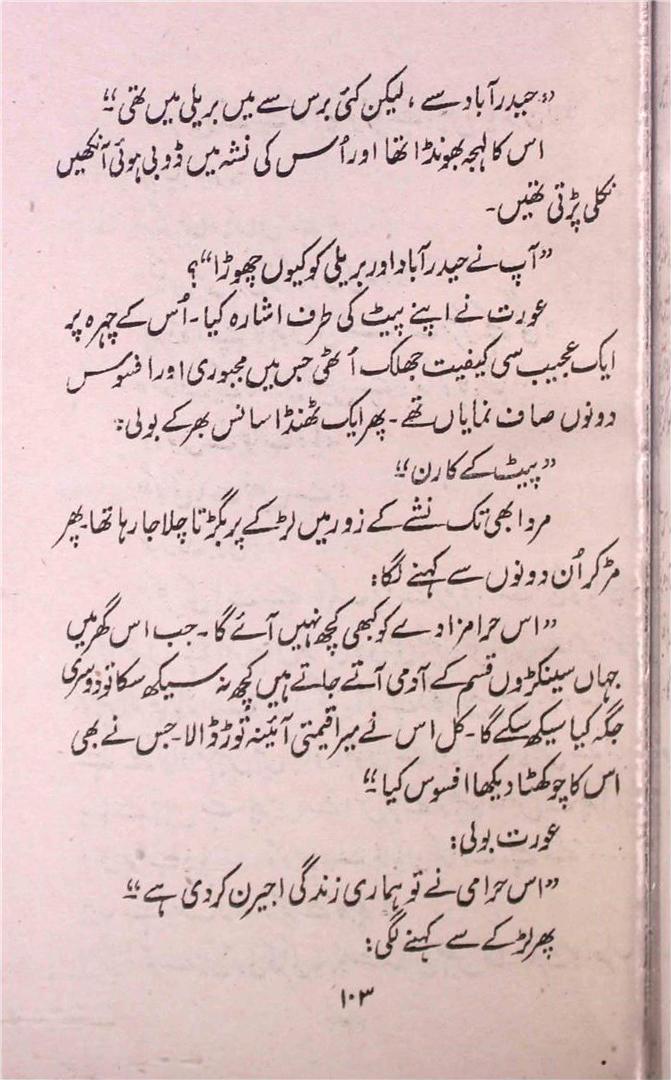 ”حیدرآباد سے، لیکن کئی برس سے میں بریلی میں تھی“
اس کا لہجہ بھونڈا تھا اور اُس کی نشہ میں ڈوبی ہوئی آنکھیں
نکلی پڑتی تھیں۔
”آپ نے حیدرآباد اور بریلی کو کیوں چھوڑا“؟
عورت نے اپنے پیٹ کی طرف اشارہ کیا۔ اُس کے چہرہ پر
ایک عجیب سی کیفیت جھلک اُٹھی جس میں مجبوری اور افسوس
دونوں صاف نمایاں تھے۔ پھر ایک ٹھنڈا سانس بھر کے بولی:
”پیٹ کے کارن“
مرد ابھی تک نشے کے زور میں لڑکے پر بگڑتا چلا جا رہا تھا۔ پھر
مڑ کر اُن دونوں سے کہنے لگا:
”اس حرامزادے کو کبھی کچھ نہیں آئے گا۔ جب اس گھر میں
جہاں سینکڑوں قسم کے آدمی آتے جاتے ہیں کچھ نہ سیکھ سکا تو دوسری
جگہ کیا سیکھ سکے گا۔ کل اس نے میرا قیمتی آئینہ توڑ ڈالا۔ جس نے بھی
اس کا چوکھٹا دیکھا افسوس کیا“
عورت بولی:
”اس حرامی نے تو ہماری زندگی اجیرن کر دی ہے“
پھر لڑکے سے کہنے لگی:
۱۰۳